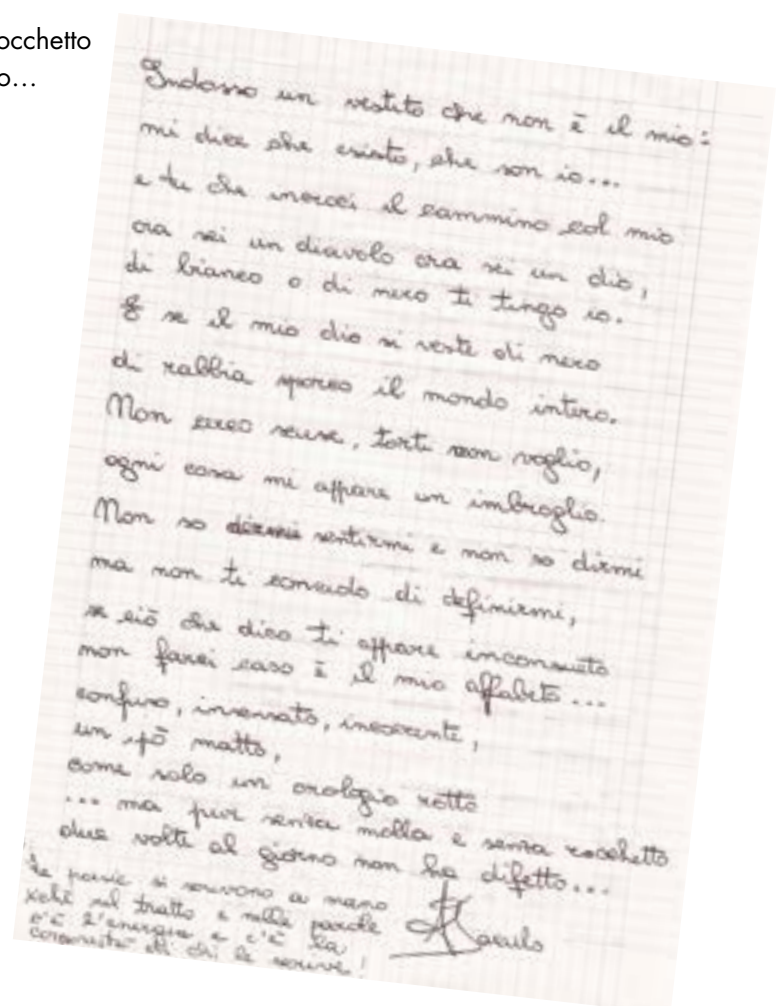 occhetto
o...
Indosso un vestito che non è il mio:
mi dice che esisto, che son io...
e tu che incroci il cammino col mio
ora sei un diavolo ora sei un dio,
di bianco o di nero ti tingo io.
E se il mio dio si veste di nero
di rabbia sporco il mondo intero.
Non cerco scuse, torti non voglio,
ogni cosa mi appare un imbroglio.
Non so sentirmi e non so dirmi
ma non ti concedo di definirmi,
se ciò che dico ti appare inconsueto
non farci caso è il mio alfabeto...
confuso, insensato, incoerente,
un pò matto,
come solo un orologio rotto
... ma pur senza molla e senza rocchetto
due volte al giorno non ha difetto...
Le poesie si scrivono a mano
xché nel tratto e nelle parole
c'è l'energia e c'è la
di chi le scrive!